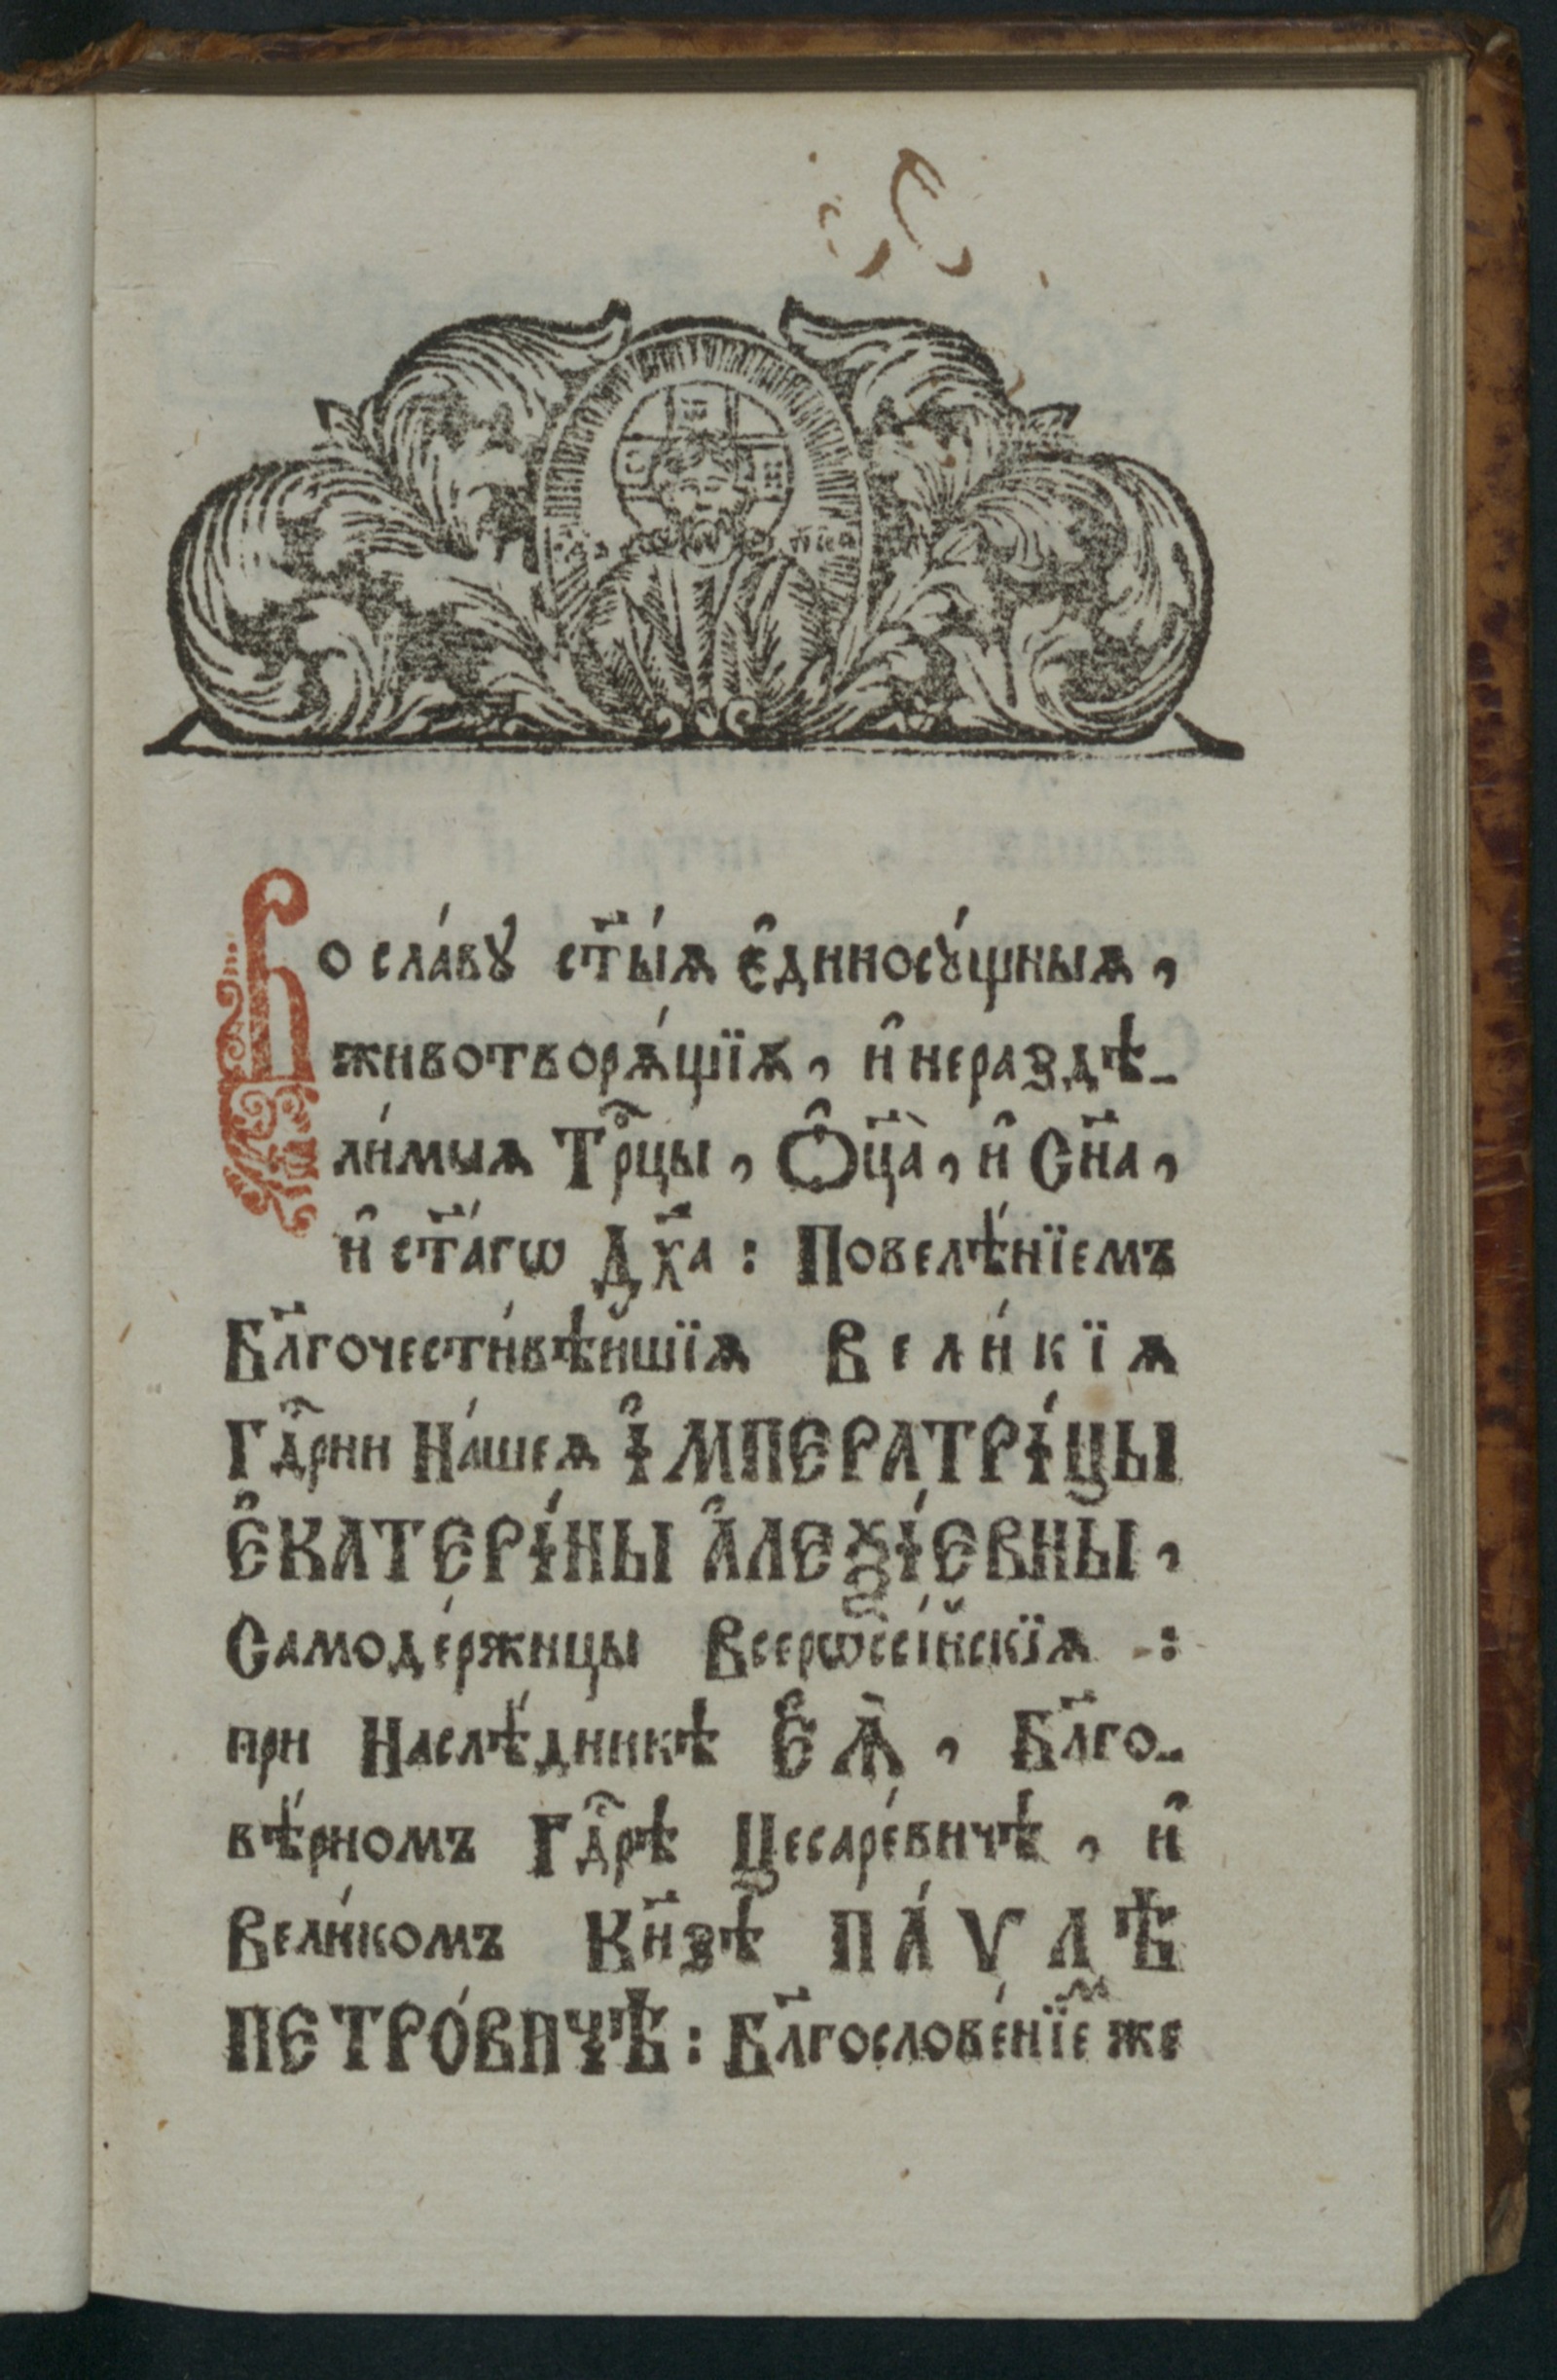 Во сла́вꙋ ст҃ы́ѧ є҆диносꙋ́щныѧ,
животворѧ́щїѧ, и҆ нераздѣ-
ли́мыѧ Трⷪ҇цы, Ѻ҆ц҃а̀, и҆ Сн҃а,
и҆ ст҃а́гѡ Дх҃а: Повелѣ́нїемъ
Бл҃гочести́вѣйшїѧ Вели́кїѧ
Гдⷭ҇рни На́шеѧ І҆МПЕРАТРІ́ЦЫ
Е҆КАТЕРІ́НЫ А҆ЛЕѮІ́ЕВНЫ,
Самоде́ржицы Всерѡссі́йскїѧ :
при Наслѣ́дникѣ Е҆Ѧ̀, Бл҃го-
вѣ́рномъ Гдⷭ҇рѣ Цесаре́вичѣ, и҆
Вели́комъ Кн҃зѣ ПА́ѴЛѢ
ПЕТРО́ВИЧѢ: Бл҃гослове́нїемъ же